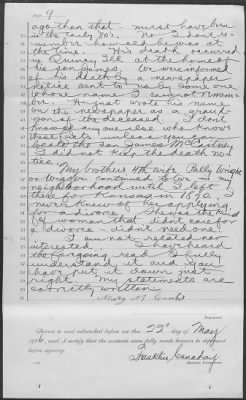 Page 9
ago than that must have been
in the early 80's. No I don't re-
member how old he was at
the time. His death occurred
in Quincy Ill at the house of
his son James. We were informed
of his death by a newspaper
notice sent to us by some one
whose name I cannot remem-
ber. I just wrote his name
on the newspaper as a grand-
son of the deceased. I don't
know of any one else who knows
these facts unless you can
locate the son James McCartney
I did not keep the death no-
tice.
My brothers 4th wife, Polly Wright
or Logsdon continued to live in the
neighborhood until I left
there for Kansas in 1870. I
never knew of her applying
for a divorce. She was the kind
of woman that didn't care for
a divorce - didn't need one.
I am not related nor
interested. I have heard
the foregoing read. I fully
understand it and you
have put it down just
right. My statements are
correctly written.
Mary M.
Deponent.
Sworn to and subscribed before me this 22d day of May
190 6, and I certify that the contents were fully made known to deponent
before signing.
Canaday
Special Examiner.